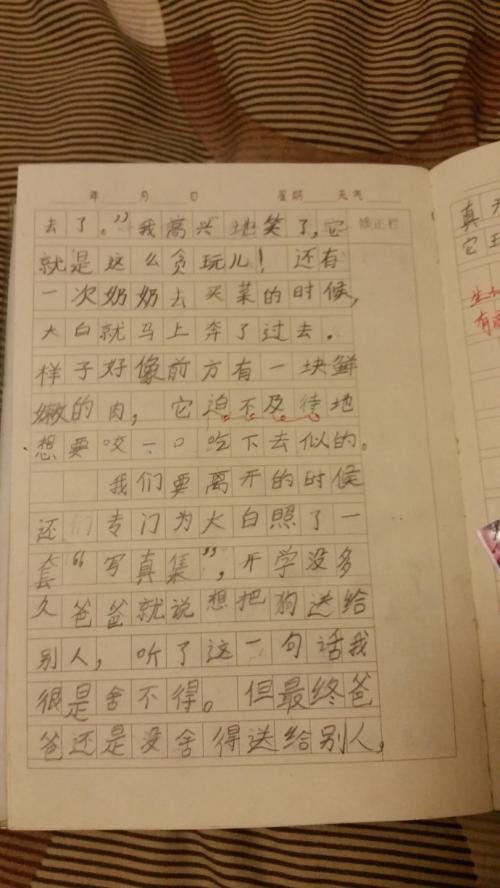 年 月 日 星期 天气
去了。”我高兴地笑了,它 修正栏
就是这么贪玩儿！还有
一次奶奶去买菜的时候,
大白就马上奔了过去.
样子好像前方有一块鲜
嫩的肉,它迫不及待地
想要咬一口吃下去似的。
我们要离开的时候
还们专门为大白照了一
套“写真集”,开学没多
久爸爸就说想把狗送给
别人,听了这一句话我
很是舍不得。但最终爸
爸还是没舍得送给别人,
真
它
有